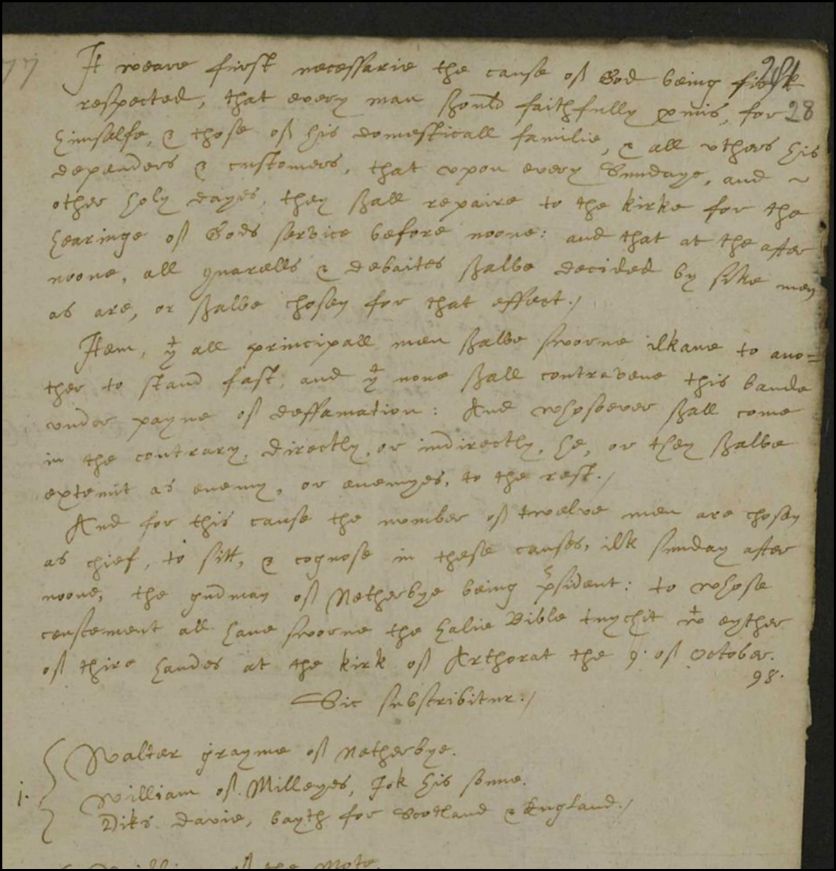 77
It weare first necessarie the cause of God being first
respected, that every man should faithfully pmis, for 28
himselfe, & those of his domesticall familie, & all uthers his
dependers & customers, that upon every Sundaye, and ~
other holy dayes, they shall repaire to the kirke for the
hearinge of Gods service before noone: and that at the after
noone, all quarells & debaites shalbe decided by sike men
as are, or shalbe chosen for that effect./
Item, yt all principall men shalbe sworne ilkane to ano=
ther to stand fast, and yt none shall contravene this bande
under payne of deffamation: And whosoever shall come
in the contrary, directly, or indirectly, he, or they shalbe
extemit as enemy, or enemyes, to the rest./
And for this cause the number of twelve men are chosen
as chief, to sitt, & cognose in these causes, ilk sunday after
noone, the gudman of Netherbye being psident: to whose
censement all have sworne the halie Bible tuychit wt eyther
of thire handes at the kirk of Arthorat the 9. of October.
98.
Sic subscribitur./
Walter grayme of Netherbye.
j. William of Milleyes, Jok his sonne.
Diks davie, bayth for Scotland & England./
of the Mote.